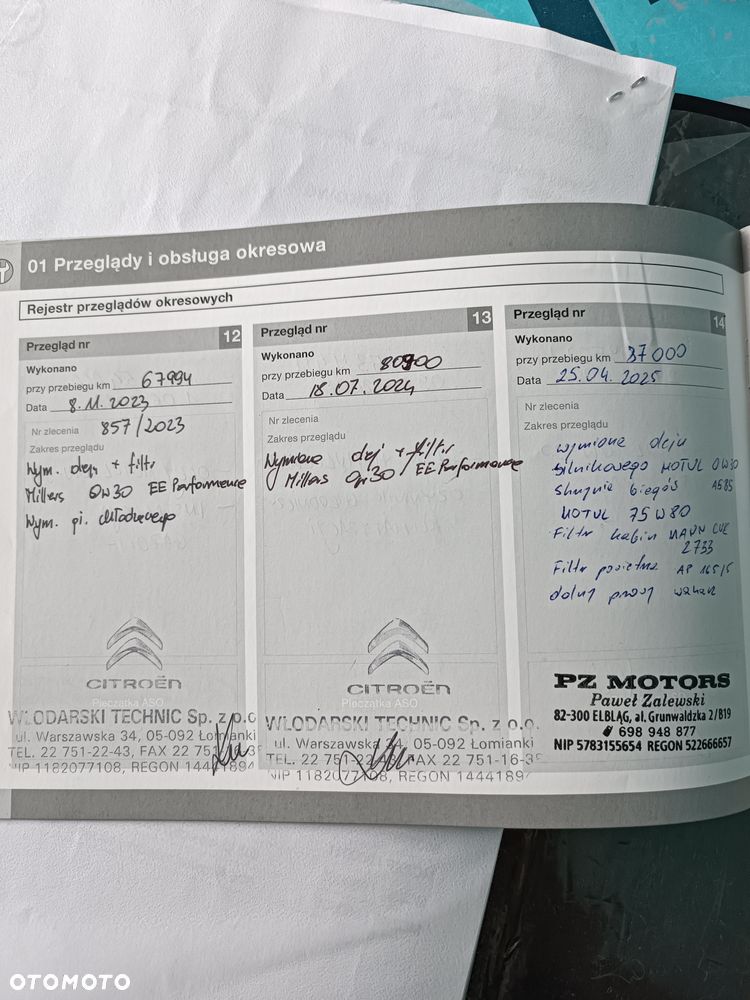 01 Przeglądy i obsługa okresowa
Rejestr przeglądów okresowych
Przegląd nr 12
Wykonano
przy przebiegu km 67994
Data 8.11.2023
Nr zlecenia 857/2023
Zakres przeglądu
Wym. oleju + filtr
Millers 0W30 EE Performance
Wym. pł. chłodzącego
CITROËN
Pieczątka ASO
WŁODARSKI TECHNIC Sp. z o.o
ul. Warszawska 34, 05-092 Łomianki
TEL. 22 751-22-43, FAX 22 751
NIP 1182077108, REGON 14441894
Przegląd nr 13
Wykonano
przy przebiegu km
Data 18.07.2024
Nr zlecenia
Zakres przeglądu
Wymiana olej + filtr
Millers 0W30 EE Performance
CITROËN
Pieczątka ASO
WŁODARSKI TECHNIC Sp. z o.o.
ul. Warszawska 05-092 Łomianki
TEL. 22 751 FAX 22 751-16-3
NIP 1182077108, REGON 14441894
Przegląd nr 14
Wykonano
przy przebiegu km 87000
Data 25.04.2025
Nr zlecenia
Zakres przeglądu
wymiana oleju
silnikowego MOTUL 0W30
Skrzynia biegów
MOTUL 75W80
Filtr kabin MANN CUK
2733
Filtr powietrza AP 165/5
dolny prawy wahacz
PZ MOTORS
Paweł Zalewski
82-300 ELBLĄG, al. Grunwaldzka 2/B19
698 948 877
NIP 5783155654 REGON 522666657
OTOMOTO